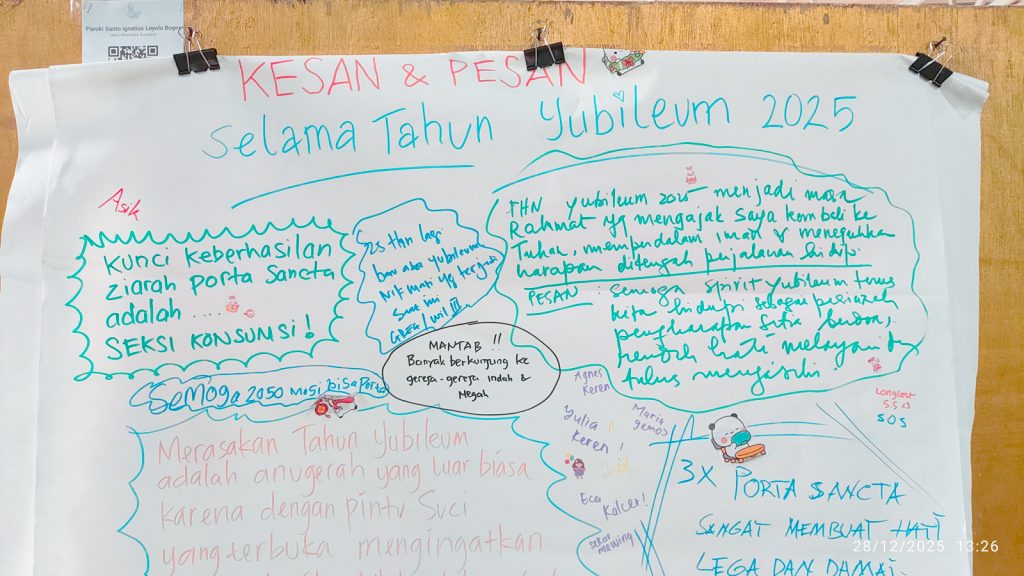 Paroki Santo Ignatius Loyola Bogor
KESAN & PESAN
Selama Tahun Yubileum 2025
Asik
Kunci keberhasilan
ziarah porta sancta
adalah ....
SEKSI KONSUMSI!
25 thn lagi
baru ada yubileum
Nikmati yg terjadi
saat ini
THN yubileum 2025 menjadi masa
Rahmat yg mengajak saya kembali ke
Tuhan, memperdalam iman & meneguhkan
harapan ditengah perjalanan hidip
PESAN : semoga spirit yubileum terus
kita hidupi sebagai peziarah
pengharapan setia berdoa,
rendah hati melayani dn
tulus mengasihi.
MANTAB !!
Banyak berkunjung ke
gereja-gereja indah &
Megah
Semoga 2050 masi bisa Porta
Agnes
Keren
Maria
gemos
Yulia
keren!
Ece
Kalcer!
sekar
mewing
Longlast
S.S <3
SOS
Merasakan Tahun Yubileum
adalah anugerah yang luar biasa
karena dengan pintu Suci
yang terbuka mengingatkan
3X PORTA SANCTA
SANGAT MEMBUAT HATI
LEGA DAN DAMAI.
28/12/2025 13:26